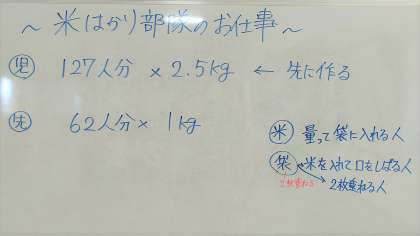 ～米はかり部隊のお仕事～
児 127人分 × 2.5kg ← 先に作る
先 62人分 × 1kg
米 量って袋に入れる人
袋 米を入れて口をしばる人
2枚重ねる 2枚重ねる人